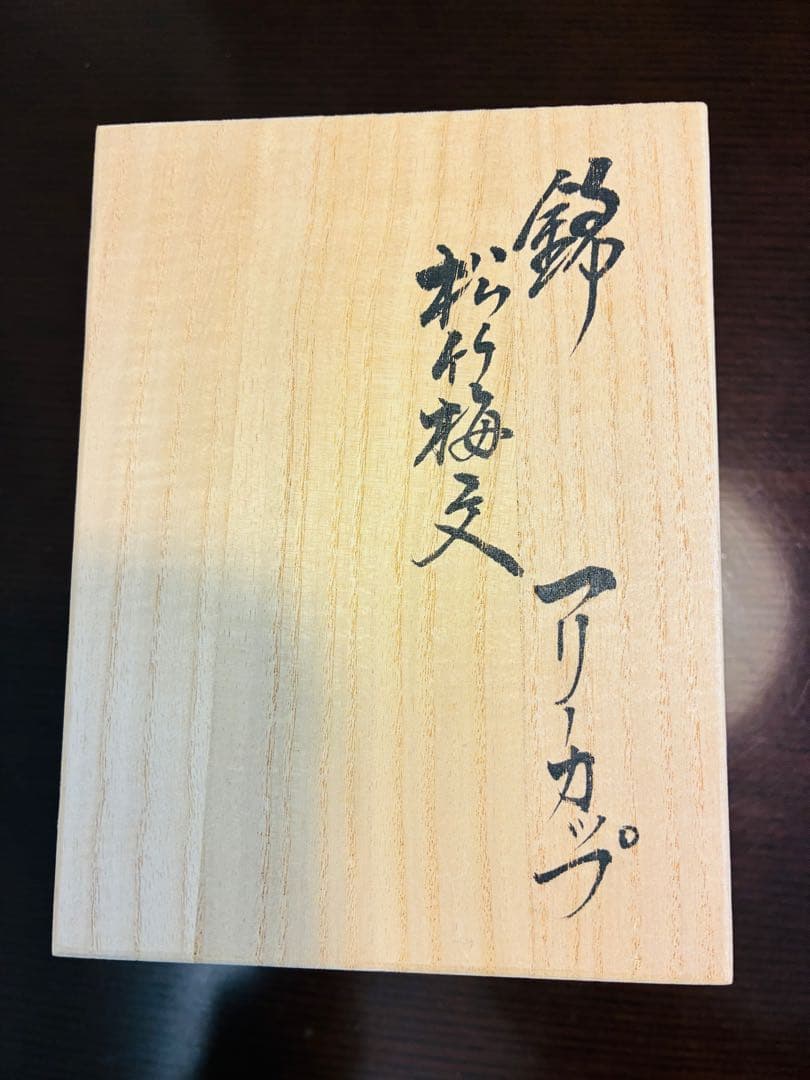 錦
松竹梅文
フリーカップ